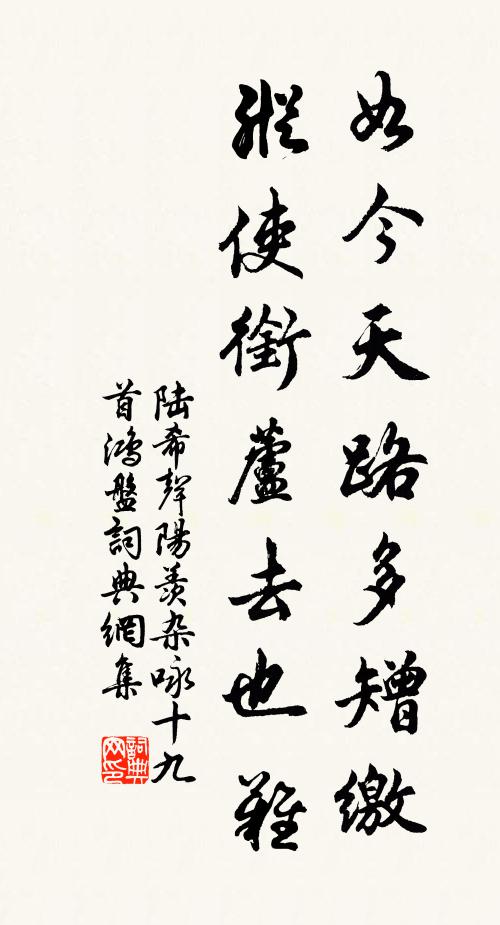 如今天路多矰繳
縱使銜蘆去也難
陆希聲陽羨杂咏十九
首鴻盤詞典網集
詞典网印